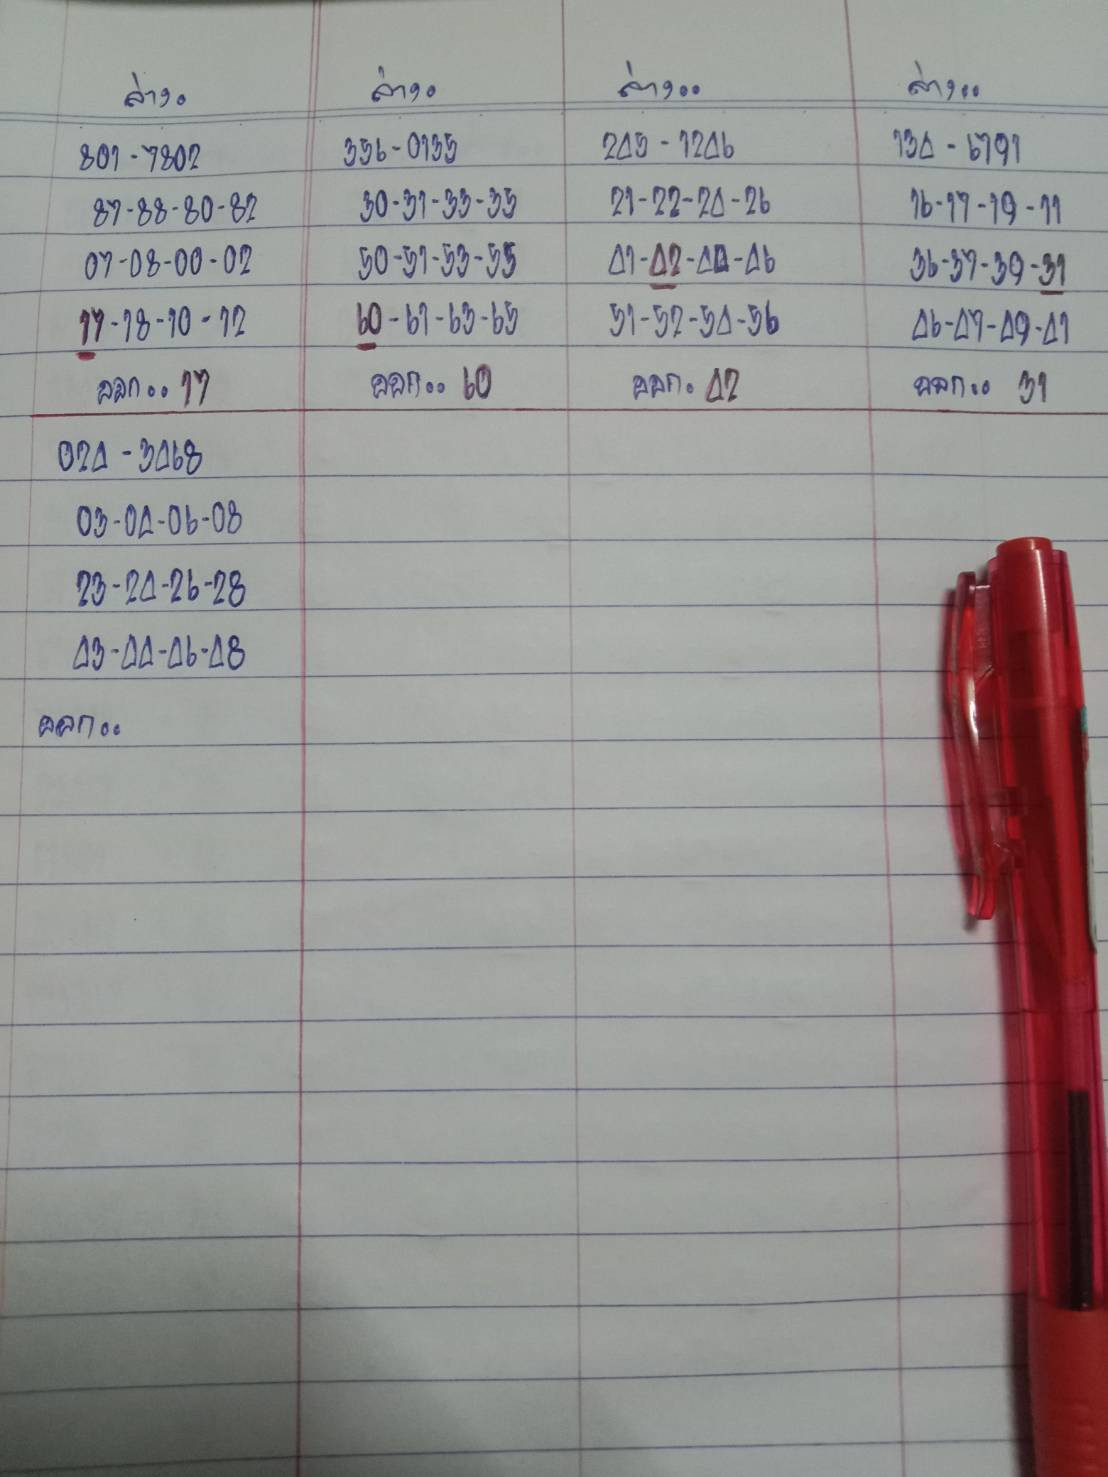 ล่าง.
801-7802
87-88-80-82
07-08-00-02
17-18-10-12
ออก.. 17
ล่าง.
356-0135
30-31-33-35
50-51-53-55
60-61-63-65
ออก.. 60
ล่าง..
245-1246
21-22-24-26
41-42-44-46
51-52-54-56
ออก. 42
ล่าง..
134-6791
16-17-19-11
36-37-39-31
46-47-49-41
ออก.. 31
024-3468
03-04-06-08
23-24-26-28
43-44-46-48
ออก..